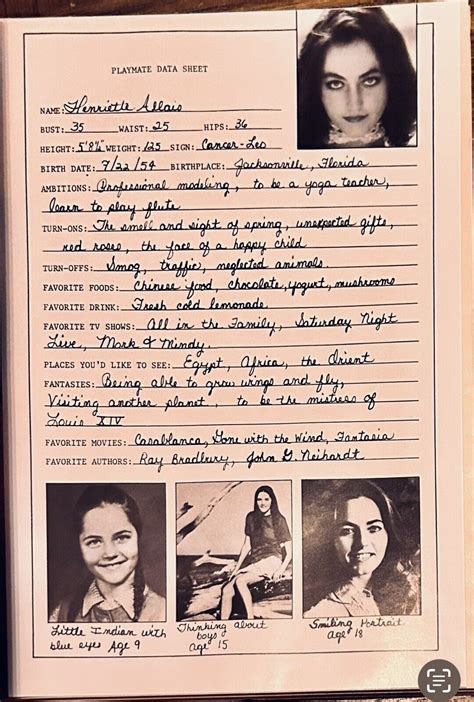 PLAYMATE DATA SHEET
NAME: Henriette Allais
BUST: 35 WAIST: 25 HIPS: 36
HEIGHT: 5'8½" WEIGHT: 125 SIGN: Cancer-Leo
BIRTH DATE: 7/22/54 BIRTHPLACE: Jacksonville, Florida
AMBITIONS: Professional modeling, to be a yoga teacher,
learn to play flute
TURN-ONS: The smell and sight of spring, unexpected gifts,
red roses, the face of a happy child
TURN-OFFS: Smog, traffic, neglected animals
FAVORITE FOODS: Chinese food, chocolate, yogurt, mushrooms
FAVORITE DRINK: Fresh cold lemonade
FAVORITE TV SHOWS: All in the Family, Saturday Night
Live, Mork & Mindy.
PLACES YOU'D LIKE TO SEE: Egypt, Africa, the Orient
FANTASIES: Being able to grow wings and fly,
Visiting another planet, to be the mistress of
Louis XIV
FAVORITE MOVIES: Casablanca, Gone with the Wind, Fantasia
FAVORITE AUTHORS: Ray Bradbury, John G. Neihardt
Little Indian with
blue eyes Age 9
Thinking about
boys
age 15
Smiling Portrait
Age 18